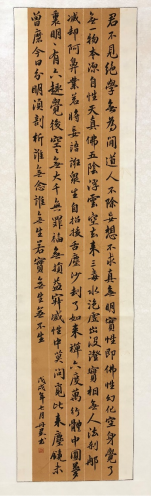 君不見絕學無為閒道人不除妄想不求真無明實性即佛性幻化空身覺了
無物本源自性天真佛五陰浮雲空去來三毒水泡虛出沒證實相無人法剎那
滅却阿鼻業若將妄語誑衆生自招拔舌塵沙劫了如來禪六度萬行體中圓夢
裏明〻有六趣覺後空〻無大千無罪福無損益寂滅性中莫問覓比來塵鏡未
曾磨今日分明須剖析誰無念誰無生若實無生無不生 戊戌年七月書